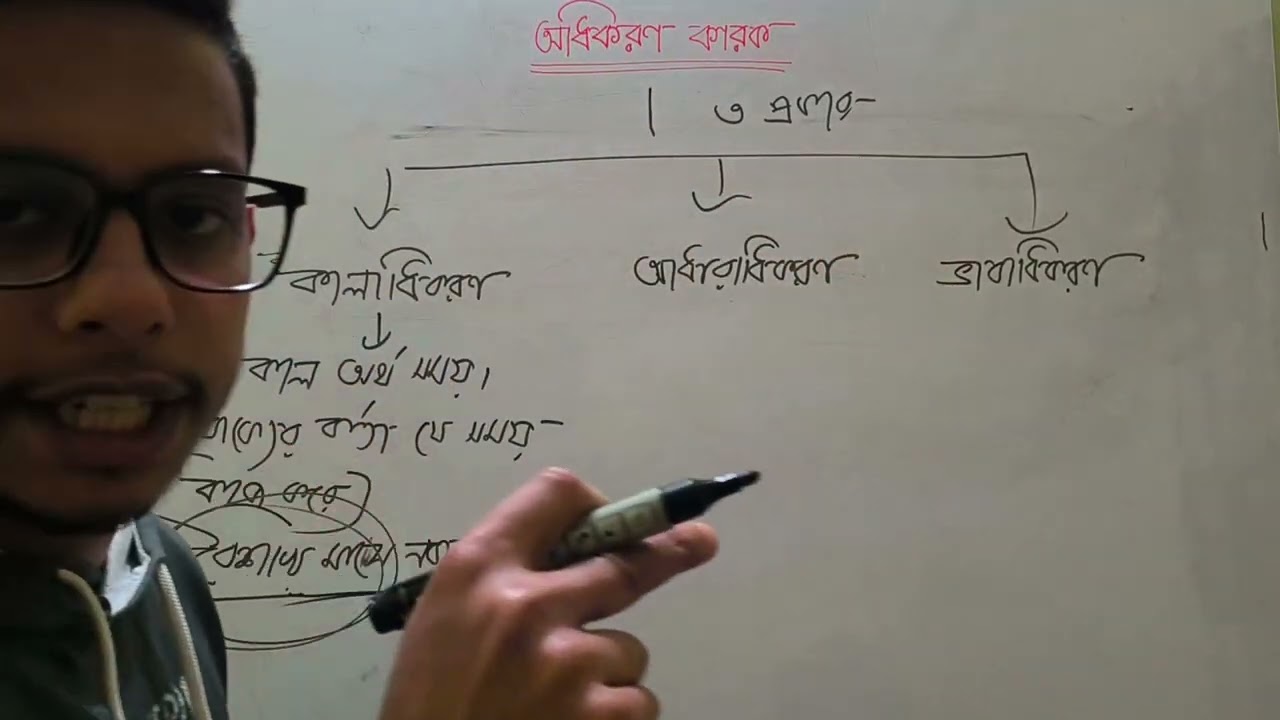 অধিকরণ কারক
৩ প্রকার
কালাধিকরণ আধারাধিকরণ ভাবাধিকরণ
কাল অর্থ সময়।
কর্তা যে সময়
কাজ করে
বৈশাখ মাসে